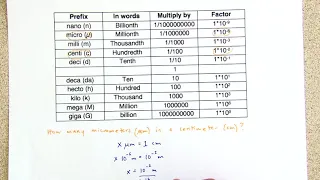 Prefix In words Multiply by Factor
nano (n) Billionth 1/1000000000 1*10⁻⁹
micro (μ) Millionth 1/1000000 1*10⁻⁶
milli (m) Thousandth 1/1000 1*10⁻³
centi (c) Hundredth 1/100 1*10⁻²
deci (d) Tenth 1/10 1*10⁻¹
1
deca (da) Ten 10 1*10¹
hecto (h) Hundred 100 1*10²
kilo (k) Thousand 1000 1*10³
mega (M) Million 1000000 1*10⁶
giga (G) billion 1000000000 1*10⁹
How many micrometers (μm) in a centimetre (cm)?
x μm = 1 cm
x 10⁻⁶ = 10⁻²
x = 10⁻²